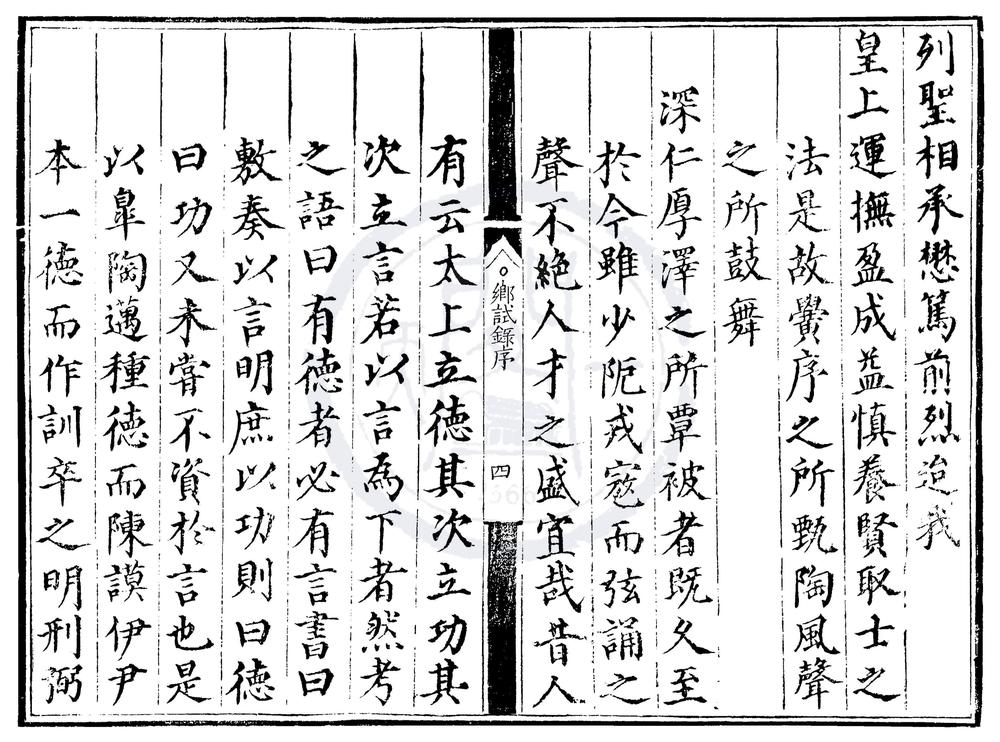 列聖相承懋篤前烈迨我
皇上運撫盈成益慎養賢取士之
法是故黌序之所甄陶風聲
之所鼓舞
深仁厚澤之所覃被者既久至
於今雖少阨戎寇而弦誦之
聲不絕人才之盛宜哉昔人
鄉試錄序
四
有云太上立德其次立功其
次立言若以言為下者然考
之語曰有德者必有言書曰
敷奏以言明庶以功則曰德
曰功又未嘗不資於言也是
以皐陶邁種德而陳謨伊尹
本一德而作訓卒之明刑弼